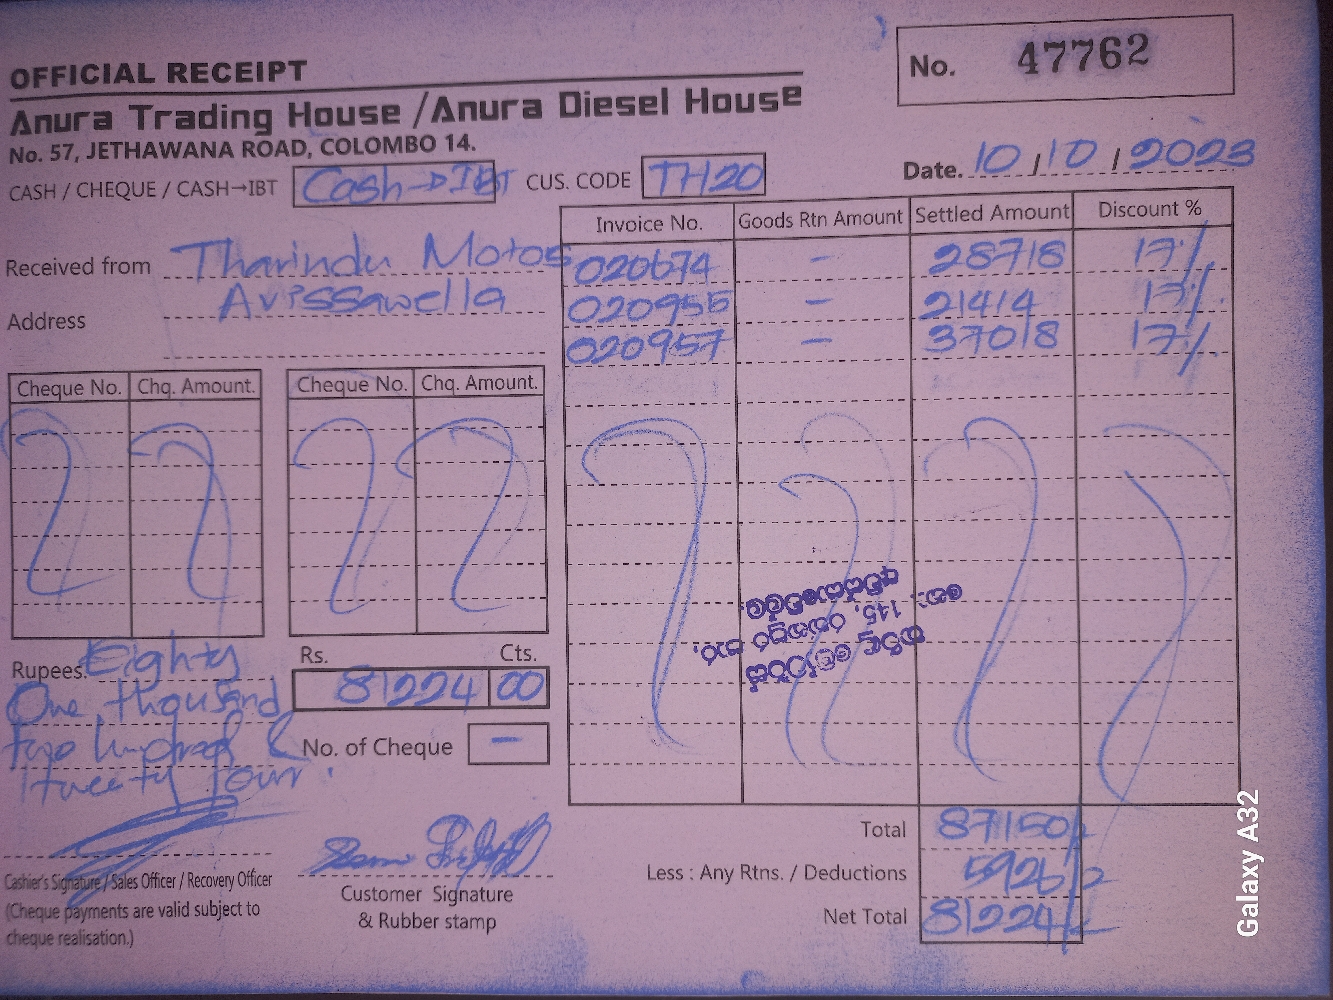 OFFICIAL RECEIPT
No. 47762
Anura Trading House / Anura Diesel House
No. 57, JETHAWANA ROAD, COLOMBO 14.
Date. 10 / 10 / 2023
CASH / CHEQUE / CASH→IBT Cash→IBT CUS. CODE TH20
Invoice No. Goods Rtn Amount Settled Amount Discount %
Received from Tharindu Motos
020674 - 28718 17%
Address Avissawella
020955 - 21414 17%
020957 - 37018 17%
Cheque No. Chq. Amount. Cheque No. Chq. Amount.
Rupees. Eighty
One thousand
two hundred &
twenty four.
Rs. Cts.
81224 00
No. of Cheque -
145,
Total 87150/-
Less : Any Rtns. / Deductions 5926/-
Net Total 81224/-
Cashier's Signature / Sales Officer / Recovery Officer
(Cheque payments are valid subject to
cheque realisation.)
Customer Signature
& Rubber stamp
Galaxy A32